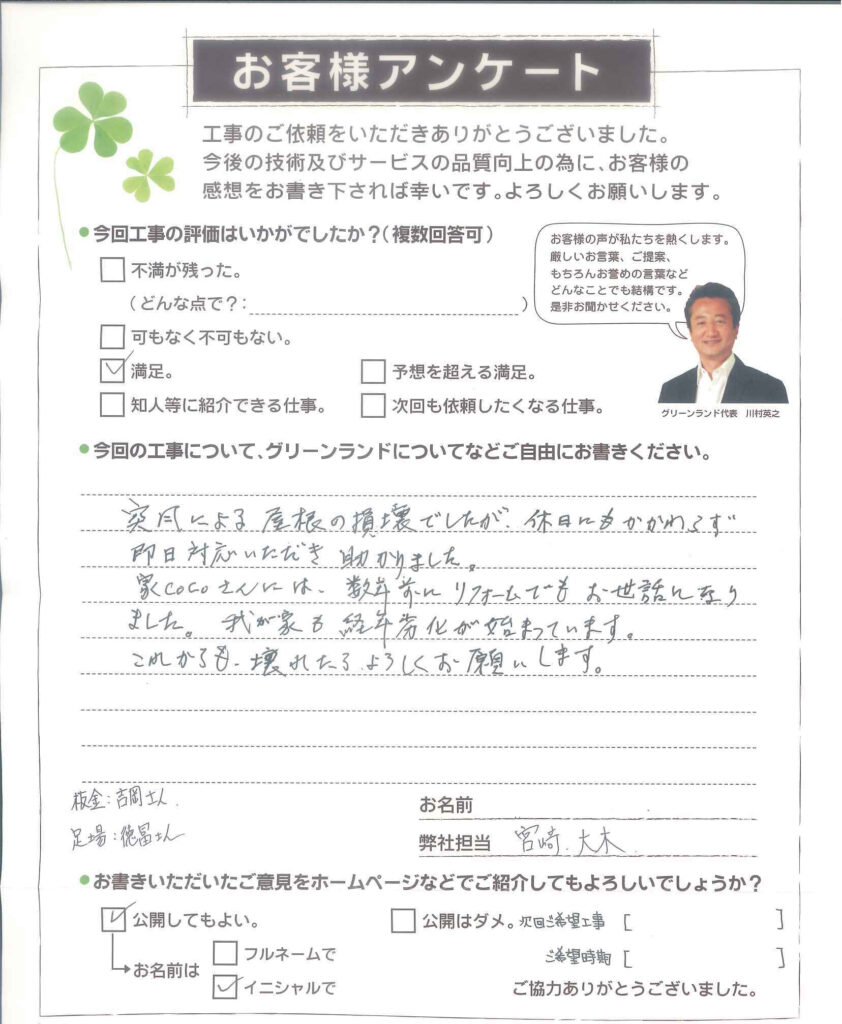 お客様アンケート
工事のご依頼をいただきありがとうございました。
今後の技術及びサービスの品質向上の為に、お客様の
感想をお書き下されば幸いです。よろしくお願いします。
●今回工事の評価はいかがでしたか？（複数回答可）
お客様の声が私たちを熱くします。
厳しいお言葉、ご提案、
もちろんお誉めの言葉など
どんなことでも結構です。
是非お聞かせください。
不満が残った。
（どんな点で？：）
可もなく不可もない。
満足。
予想を超える満足。
知人等に紹介できる仕事。
次回も依頼したくなる仕事。
グリーンランド代表 川村英之
●今回の工事について、グリーンランドについてなどご自由にお書きください。
突風による屋根の損壊でしたが、休日にもかかわらず
即日対応いただき助かりました。
家cocoさんには、数年前にリフォームでもお世話になり
ました。我が家も経年劣化が始まっています。
これからも、壊れたらよろしくお願いします。
板金：吉岡さん
足場：徳冨さん
お名前
弊社担当 宮崎、大木
●お書きいただいたご意見をホームページなどでご紹介してもよろしいでしょうか？
公開してもよい。
公開はダメ。
次回ご希望工事［ ］
お名前は
フルネームで
ご希望時期［ ］
イニシャルで
ご協力ありがとうございました。